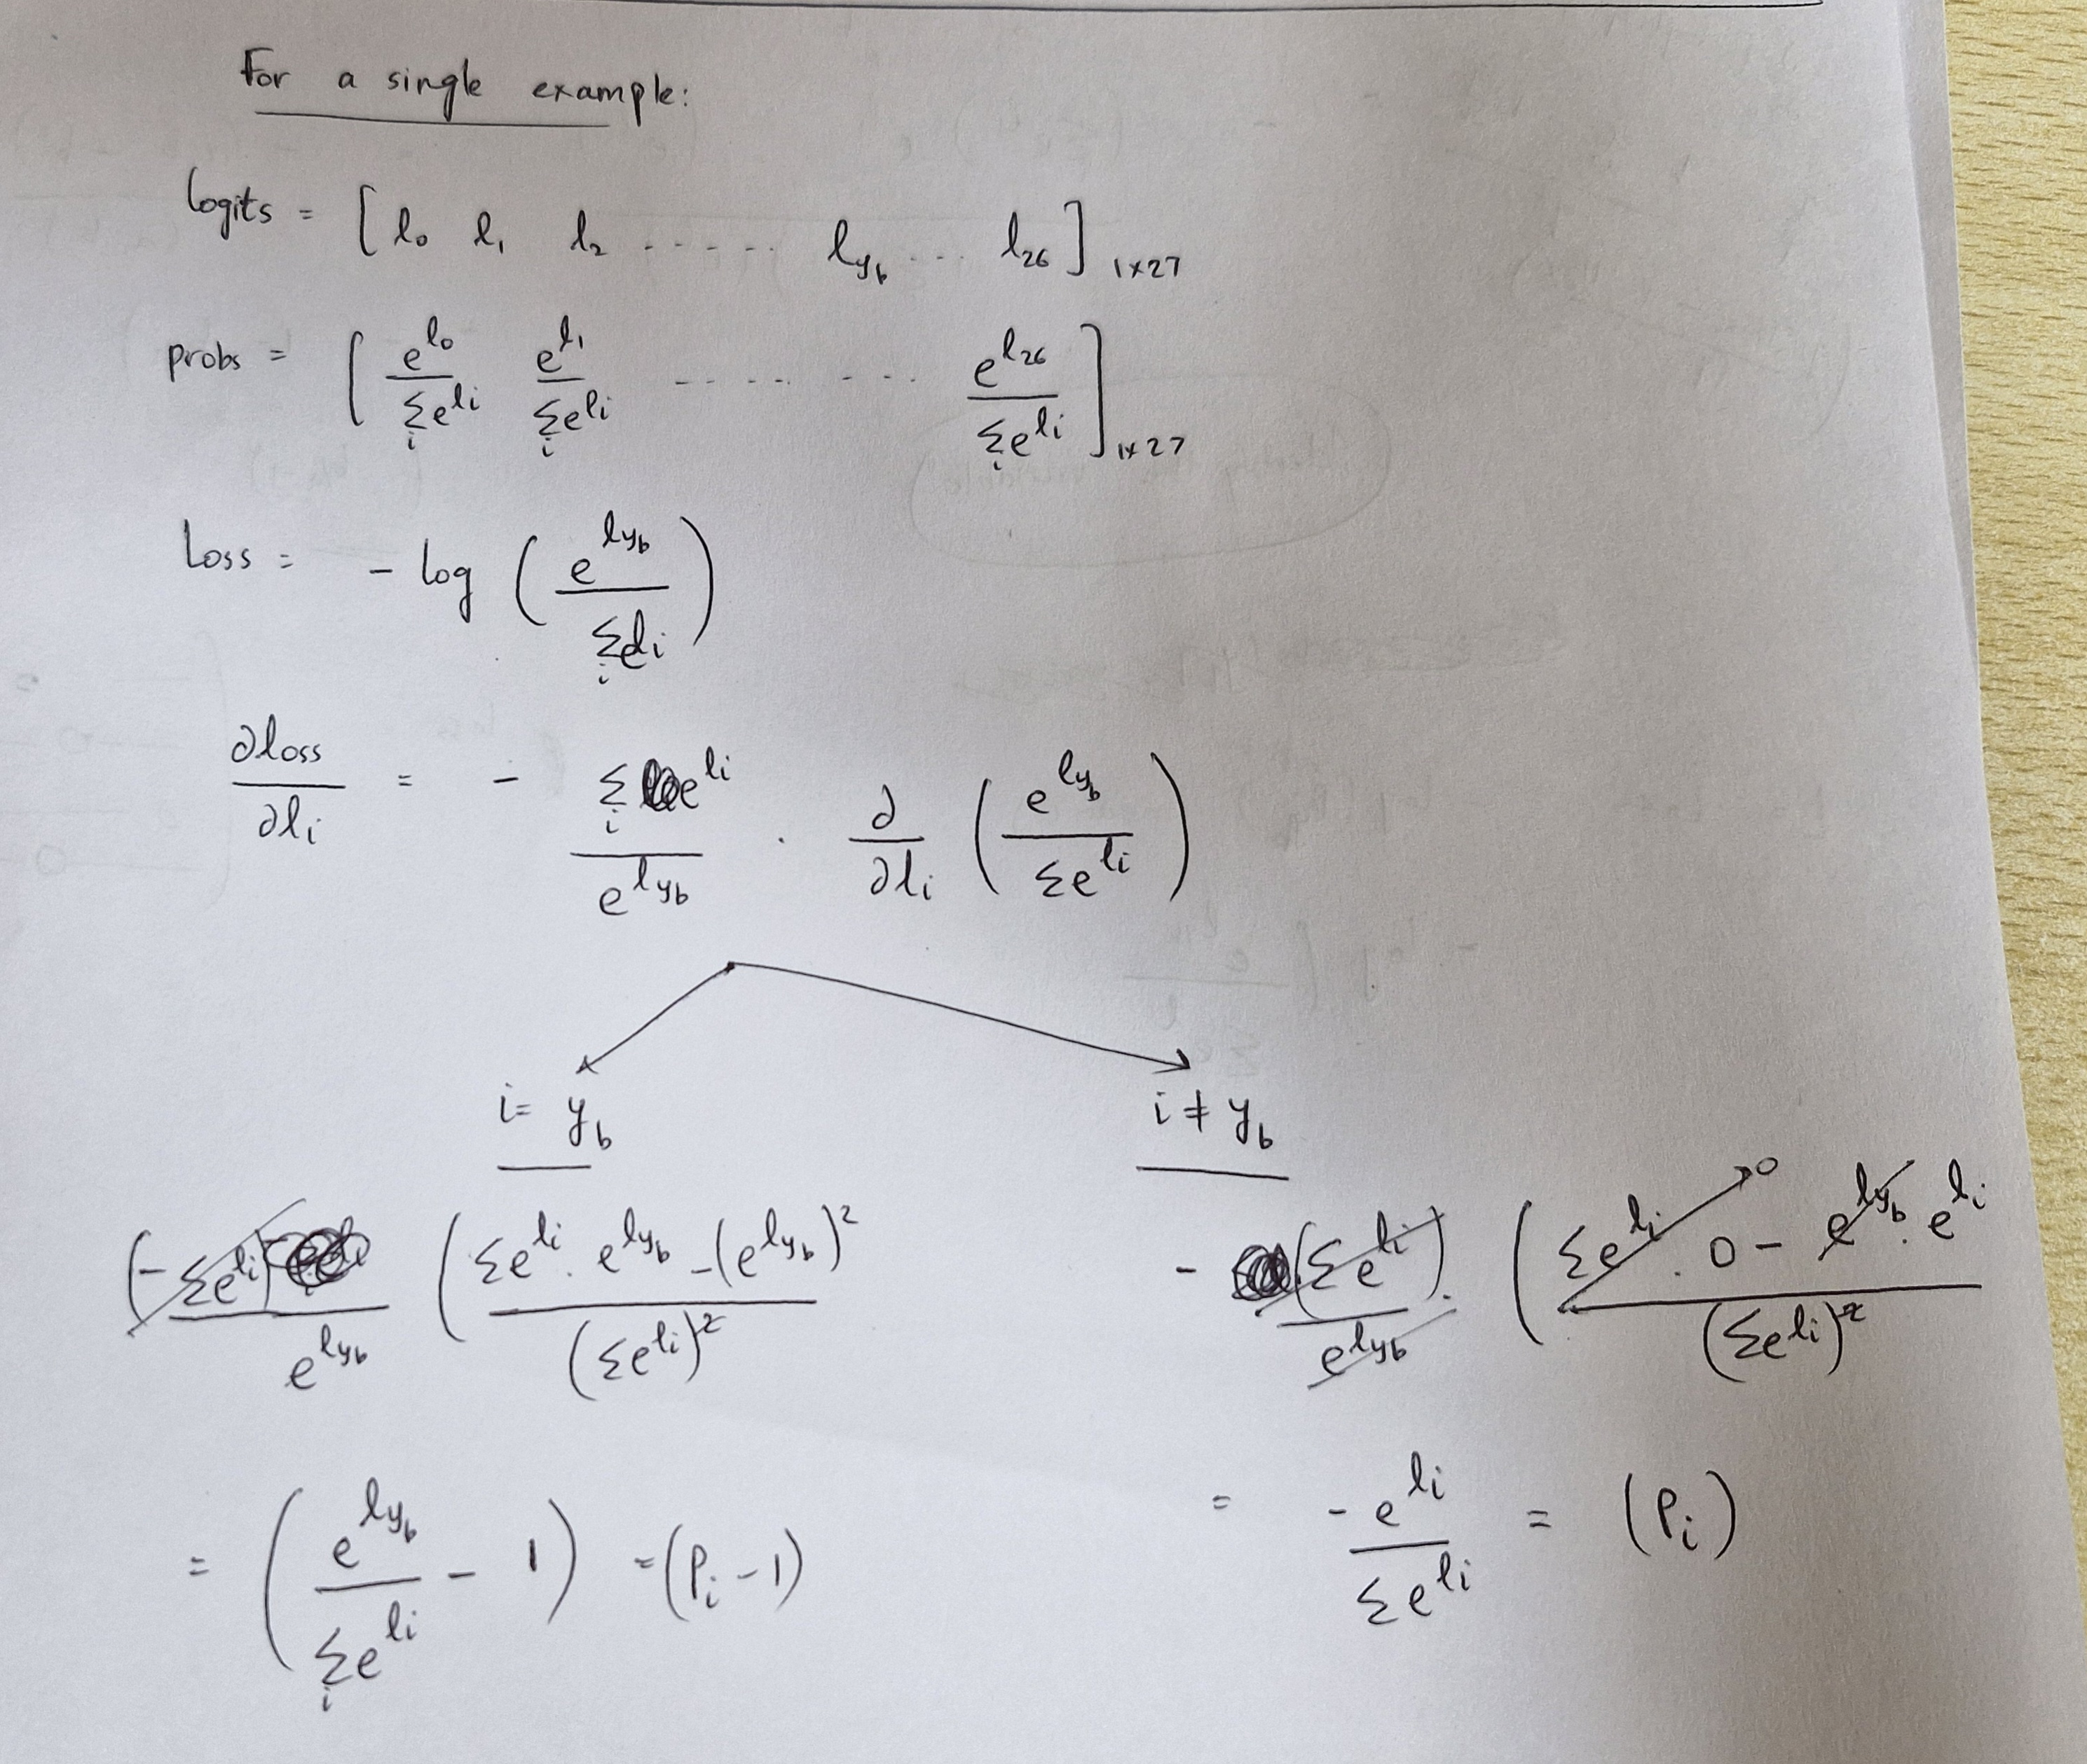 For a single example:
logits = [ l₀ l₁ l₂ ...... l_{y_b} ... l₂₆ ]_{1×27}
probs = [ e^{l₀}/Σ_i e^{li} e^{l₁}/Σ_i e^{li} ........ e^{l₂₆}/Σ_i e^{li} ]_{1×27}
Loss = - log ( e^{l_{y_b}} / Σ_i e^{li} )
∂loss/∂li = - Σ_i e^{li} / e^{l_{y_b}} . ∂/∂li ( e^{l_{y_b}} / Σe^{li} )
i = y_b i ≠ y_b
(-Σe^{li}) / e^{l_{y_b}} ( Σe^{li} . e^{l_{y_b}} - (e^{l_{y_b}})² / (Σe^{li})² - (Σe^{li}) / e^{l_{y_b}} . ( Σe^{li} . 0 - e^{l_{y_b}} . e^{li} / (Σe^{li})² → 0
= ( e^{l_{y_b}} / Σ_i e^{li} - 1 ) = (P_i - 1) = -e^{li} / Σe^{li} = (P_i)